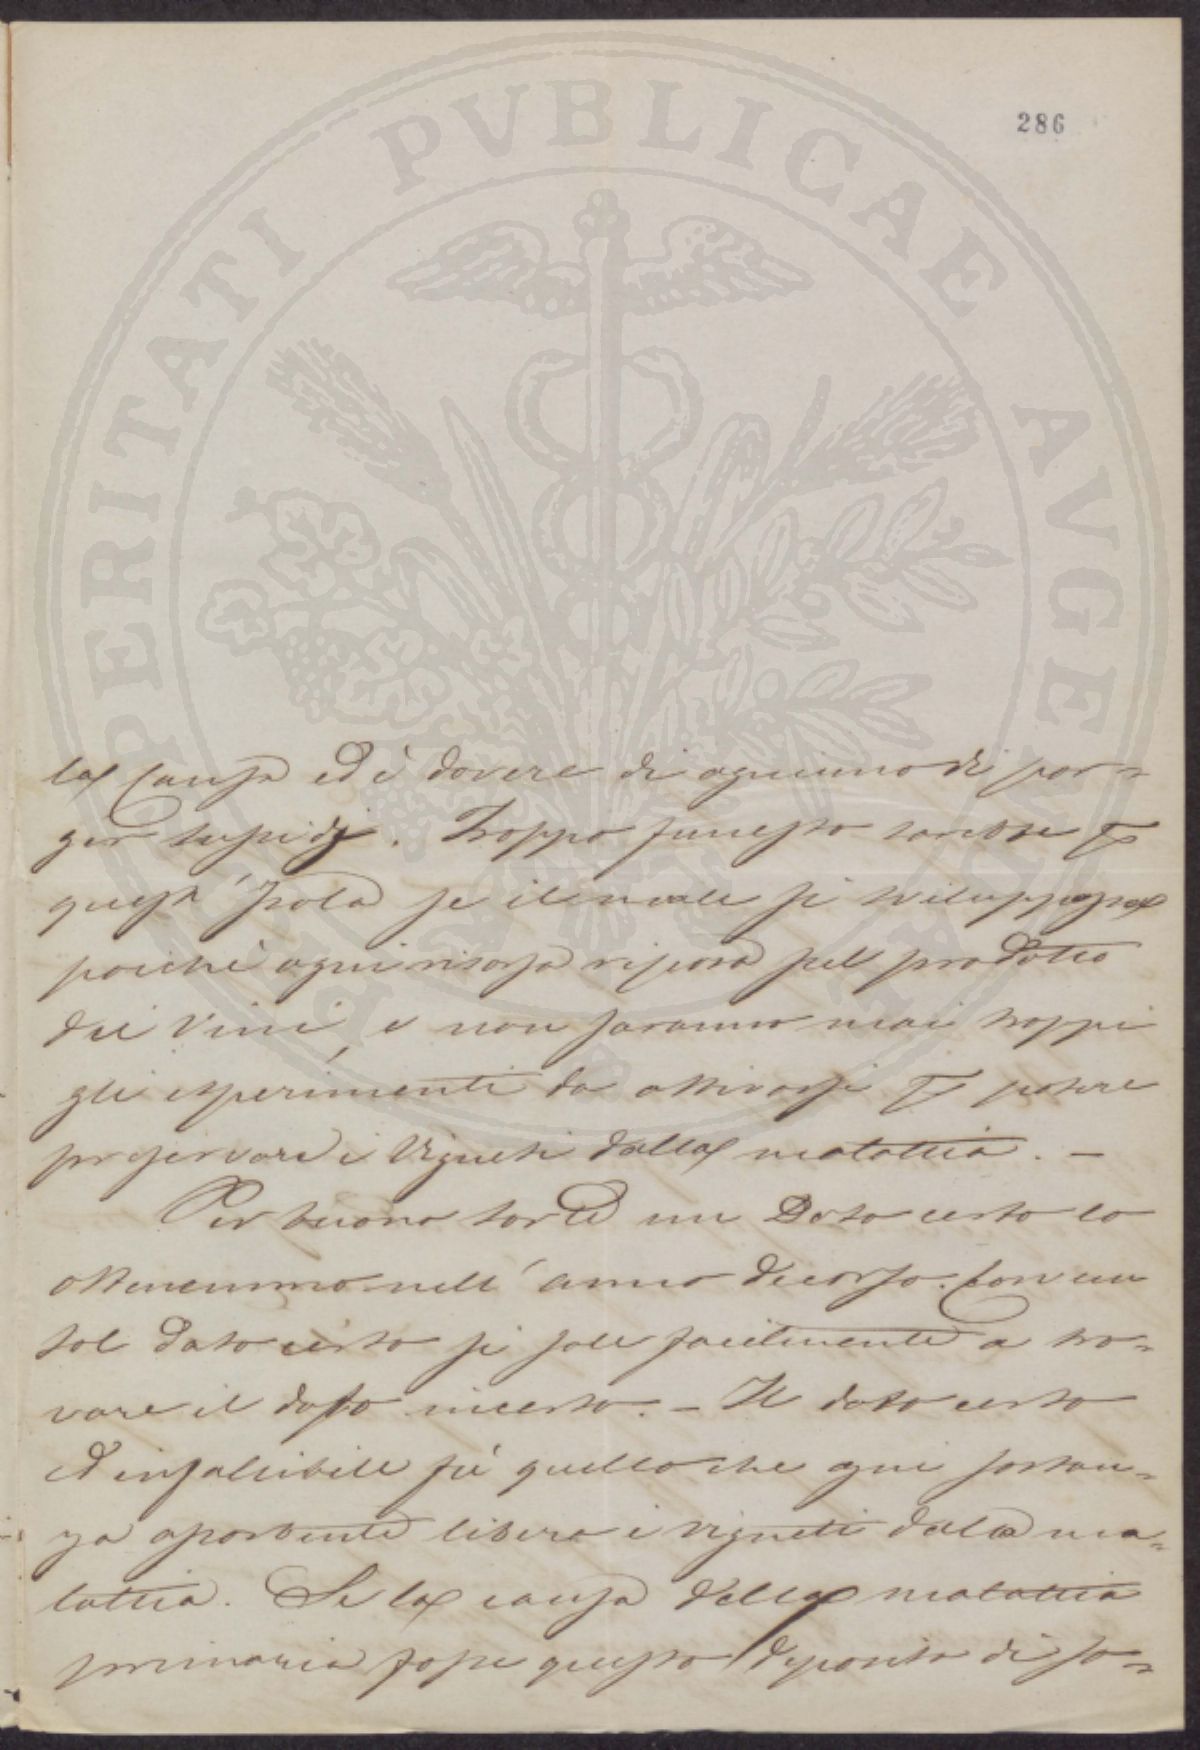 286
PROSPERITATI PVBLICAE AVGENDAE
la causa ed è dovere di ogniuno di por=
ger sussidj. Troppo funesto sarebbe p
quest'Isola se il male si sviluppasse
poichè ogni risorsa riposa sul prodotto
dei Vini, e non saranno mai troppi
gli esperimenti da attivarsi p potere
preservare i Vigneti dalla malattia. –
Per buona sorte un Dato certo lo
ottenemmo nell'anno decorso. Con un
sol Dato certo si sale facilmente a tro=
vare il dato incerto. – Il dato certo
ed infallibile fù quello che ogni sostan=
za assorbente libera i vigneti dalla ma=
lattia. Se la causa della malattia
primaria fosse questo deposito di so=